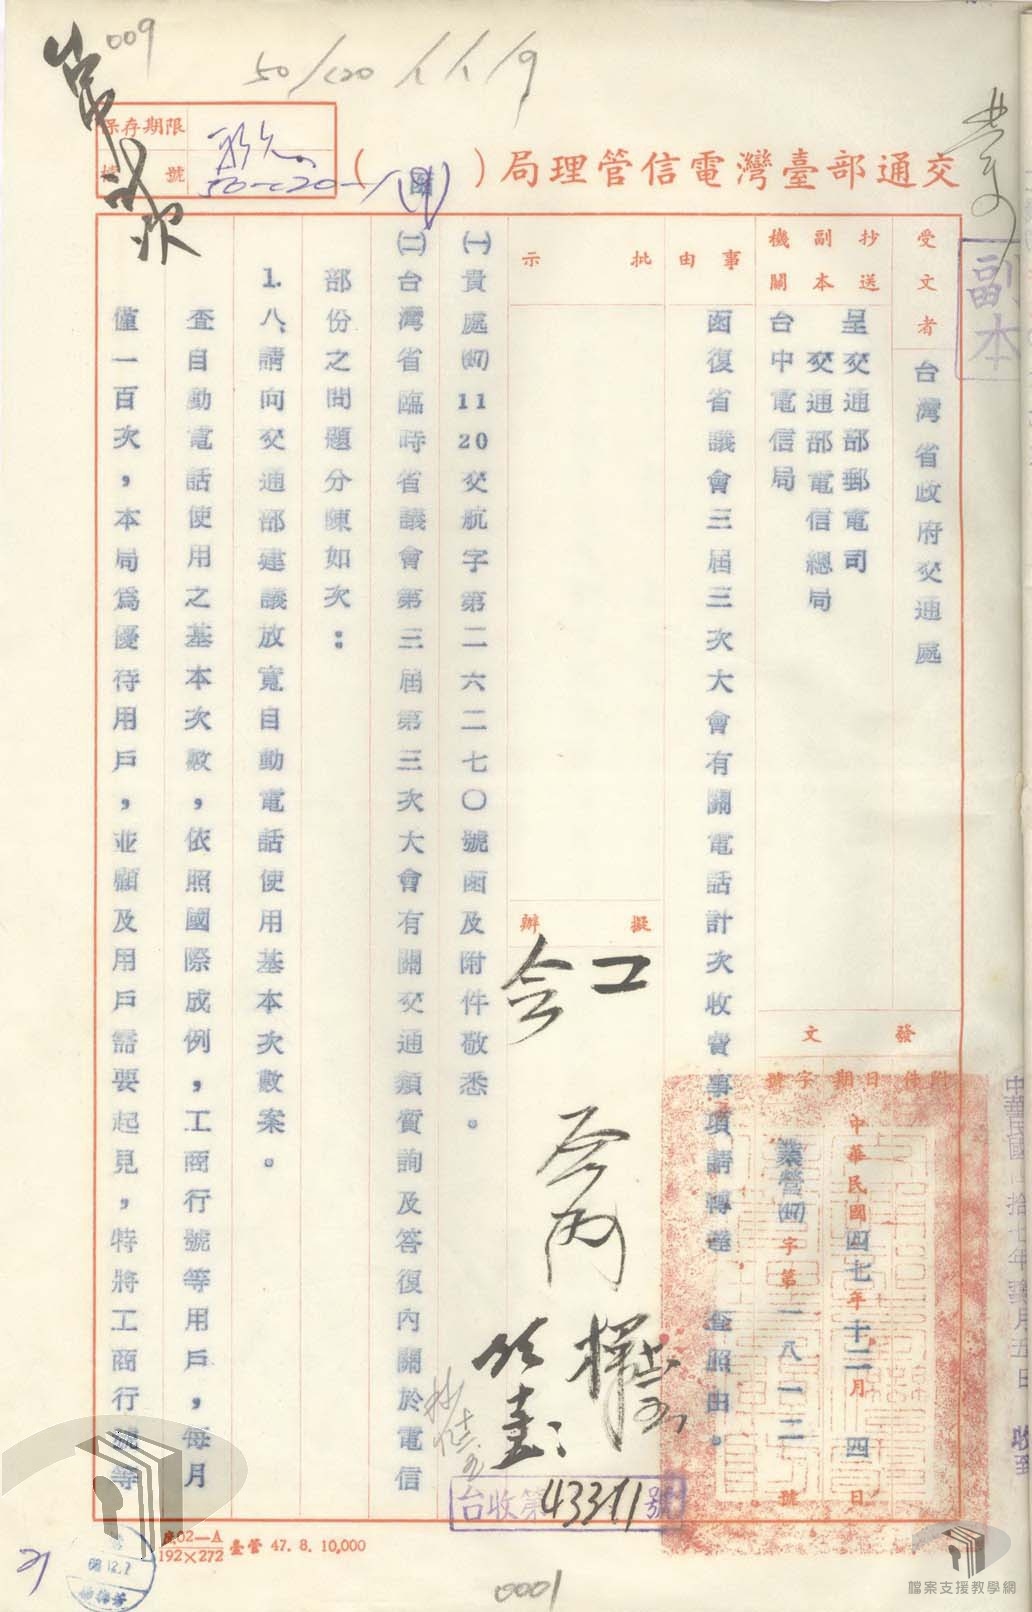 009
50/c20/1/1/9
保存期限
檔號
交通部臺灣電信管理局( )
副本
受文者
台灣省政府交通處
抄送
副本
機關
呈交通部郵電司
交通部電信總局
台中電信局
發文
附件
日期
中華民國四七年十二月四日
字號
業營(47)字第一八一二號
事由
函復省議會三屆三次大會有關電話計次收費事項請轉 查照由。
批示
擬辦
(一)貴處(47)1120交航字第二六二七〇號函及附件敬悉。
(二)台灣省臨時省議會第三屆第三次大會有關交通類質詢及答復內關於電信
部份之問題分陳如次：
1.八、請向交通部建議放寬自動電話使用基本次數案。
查自動電話使用之基本次數，依照國際成例，工商行號等用戶，每月
僅一百次，本局為優待用戶，並顧及用戶需要起見，特將工商行號等
台收第43311號
處02—A
192×272
臺管 47. 8. 10,000
68.12.7
0001
檔案支援教學網